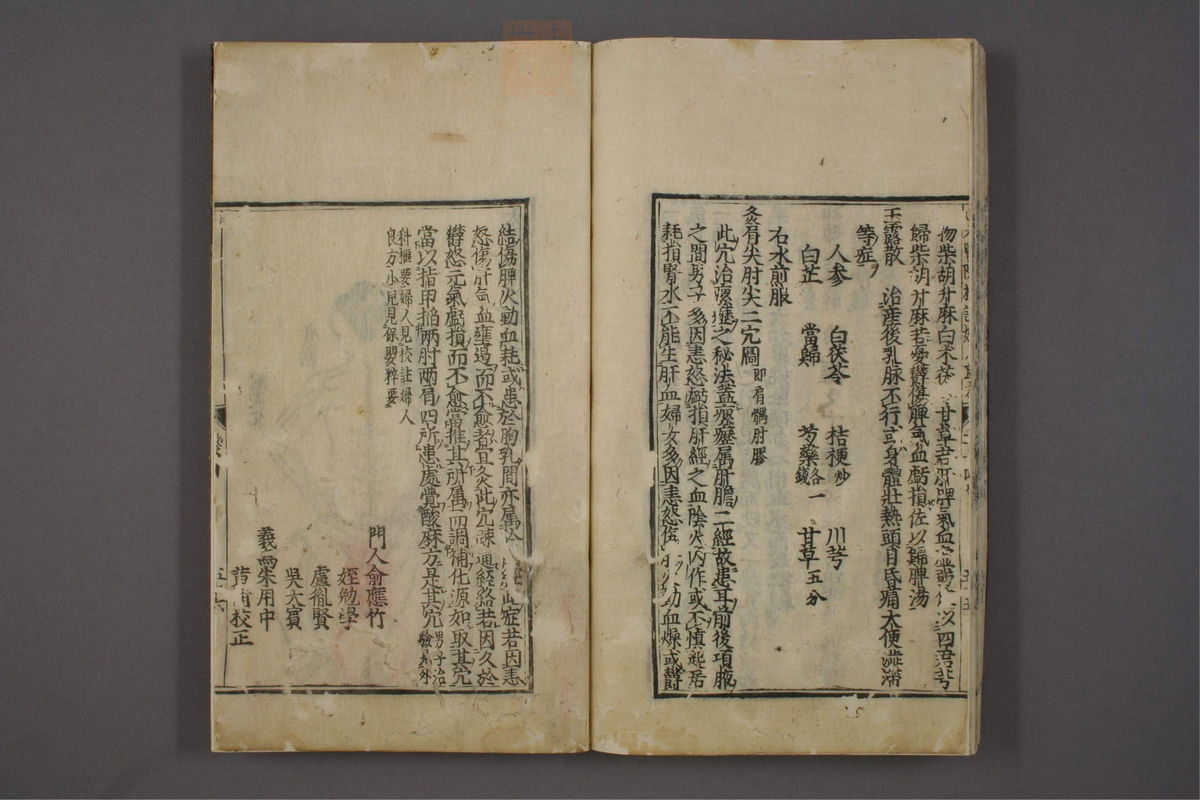 歸柴胡升麻若憂鬱傷脾氣血虧損佐以歸脾湯
玉露散 治產後乳脉不行或身體壯熱頭目昏痛大便澁滯
等症
人參 白茯苓 桔梗炒 川芎
白芷 當歸 芍藥各一錢 甘草五分
右水煎服
灸肩尖肘尖二穴圖即肩髃肘膠
此穴治瘰癧之秘法蓋瘰癧属肝膽二經故患耳前後項腋
之間男子多因恚怒虧損肝經之血陰火內作或不慎起居
耗損腎水不能生肝血婦女多因恚怒傷肝火動血燥或鬱
結傷脾火動血耗或患於胸乳間亦屬 此症若因恚
怒傷肝氣血壅遏而不愈者宜灸此穴疎通經絡若因久於
鬱怒元氣虧損而不愈當推其所属而調補化源如取其穴
當以指甲掐兩肘兩肩四所患處覺酸麻方是其穴男子治驗見外
科樞要婦人見校註婦人
良方小兒見保嬰粹要
門人俞應竹
姪勉學
盧胤賢
吳大賓
朱用中
校正